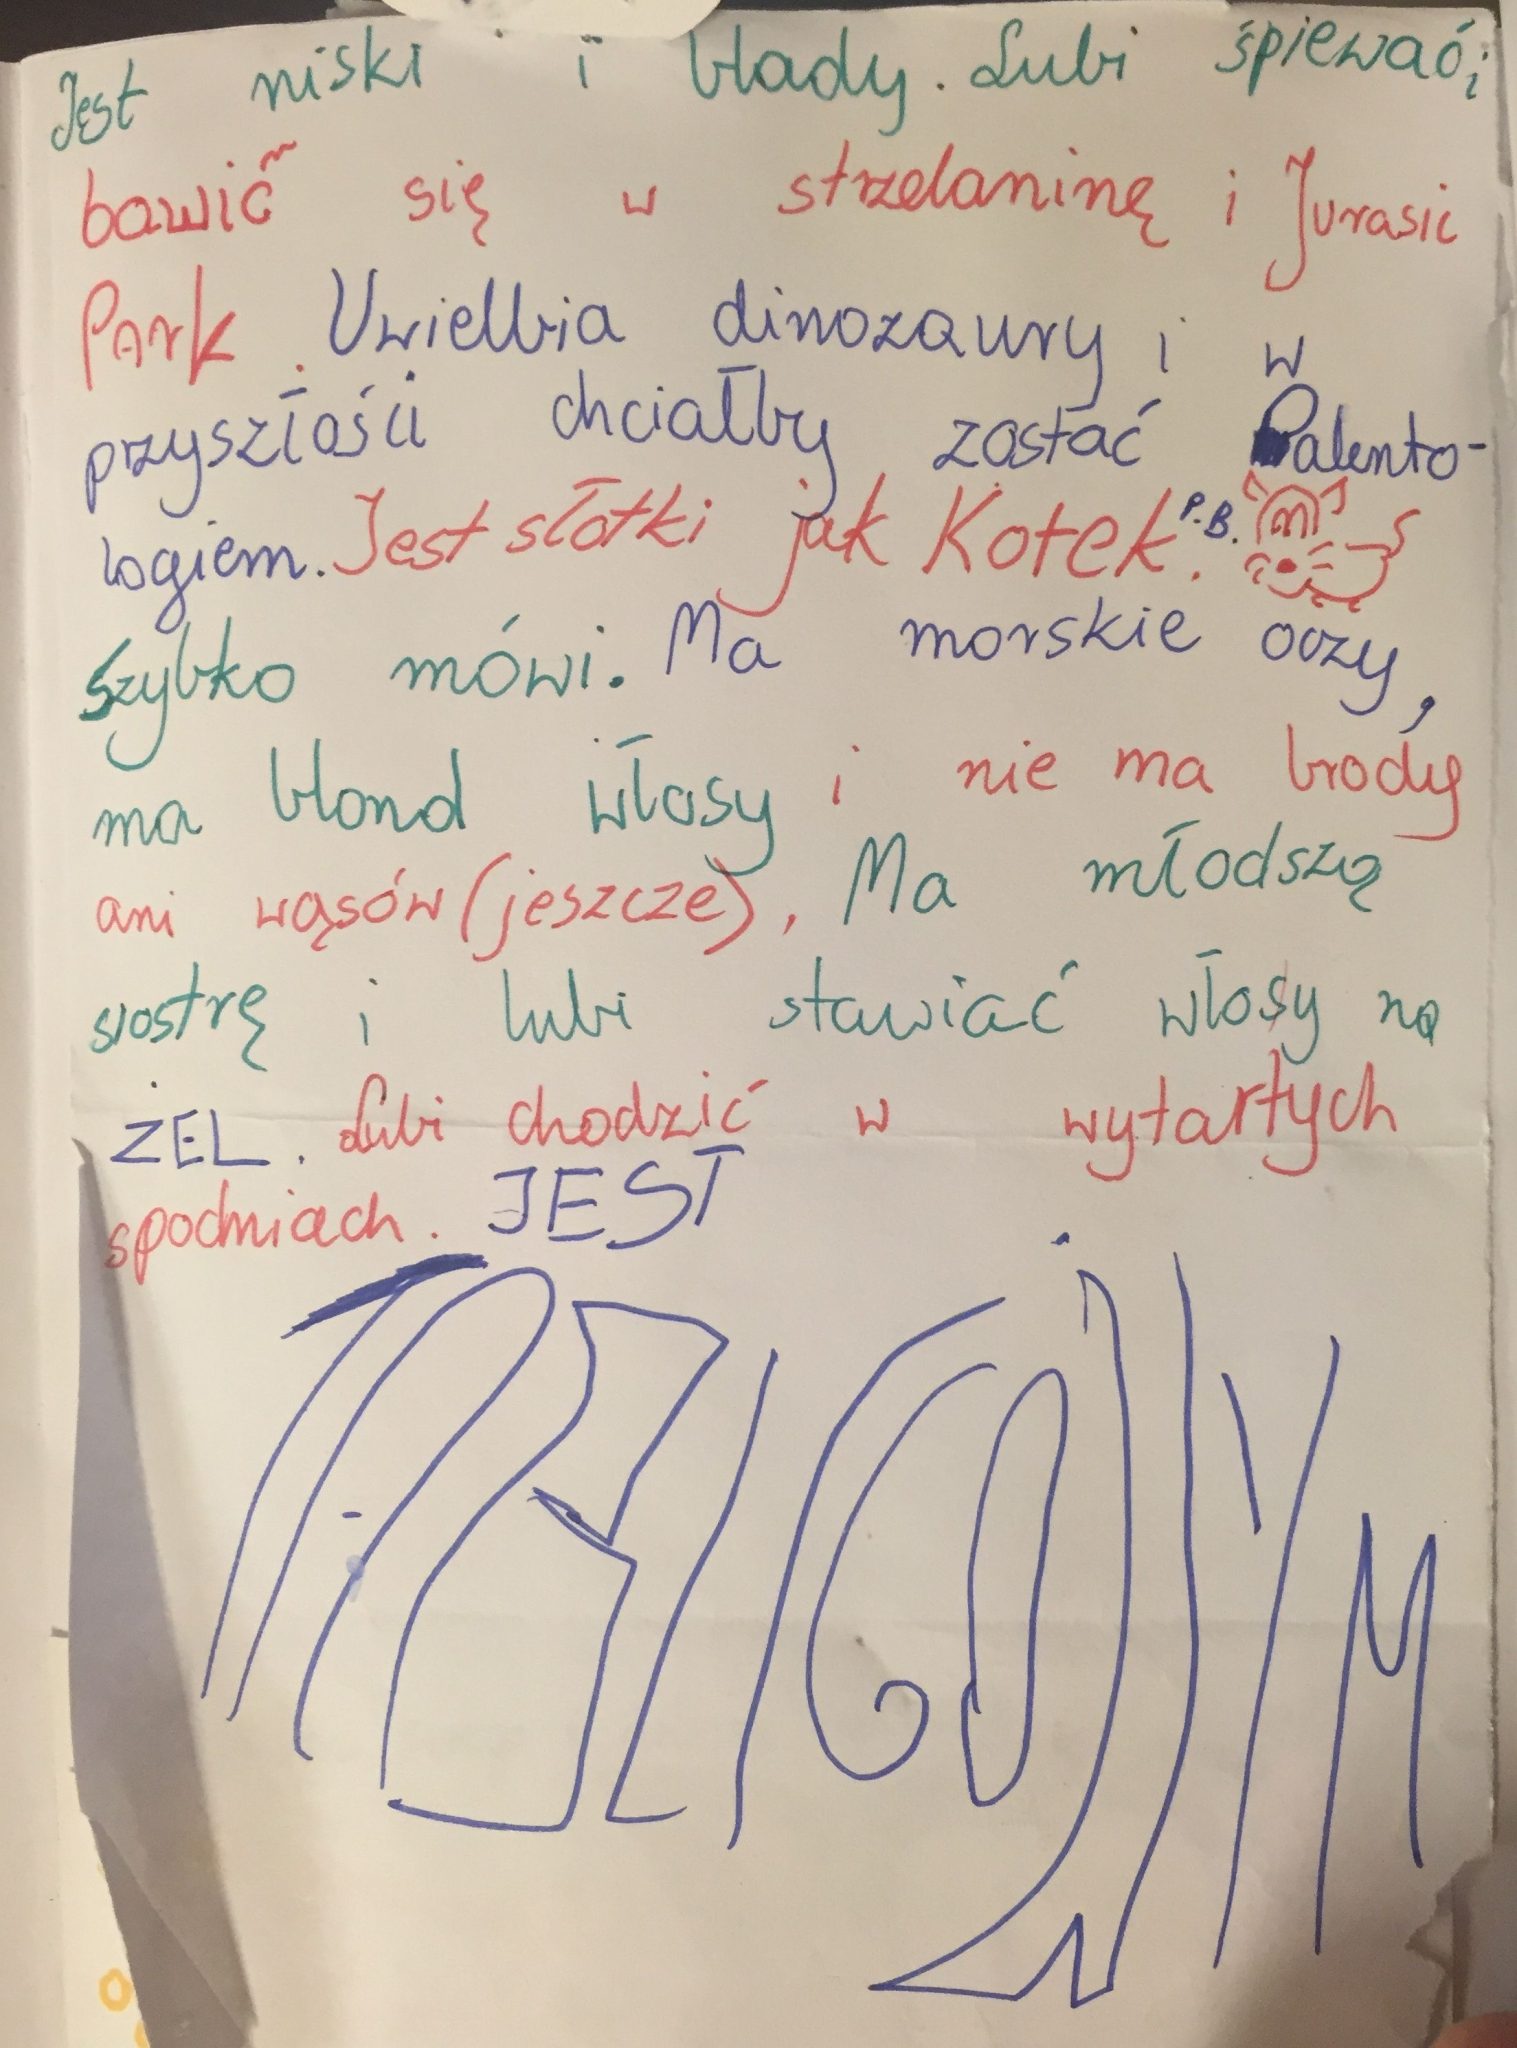 Jest niski i blady. Lubi śpiewać i
bawić się w strzelaninę i Jurasic
Park. Uwielbia dinozaury i w
przyszłości chciałby zostać Palento-
logiem. Jest słotki jak Kotek. P.B.
szybko mówi. Ma morskie oczy,
ma blond włosy i nie ma brody
ani wąsów (jeszcze). Ma młodszą
siostrę i lubi stawiać włosy na
ŻEL. Lubi chodzić w wytartych
spodniach. JEST